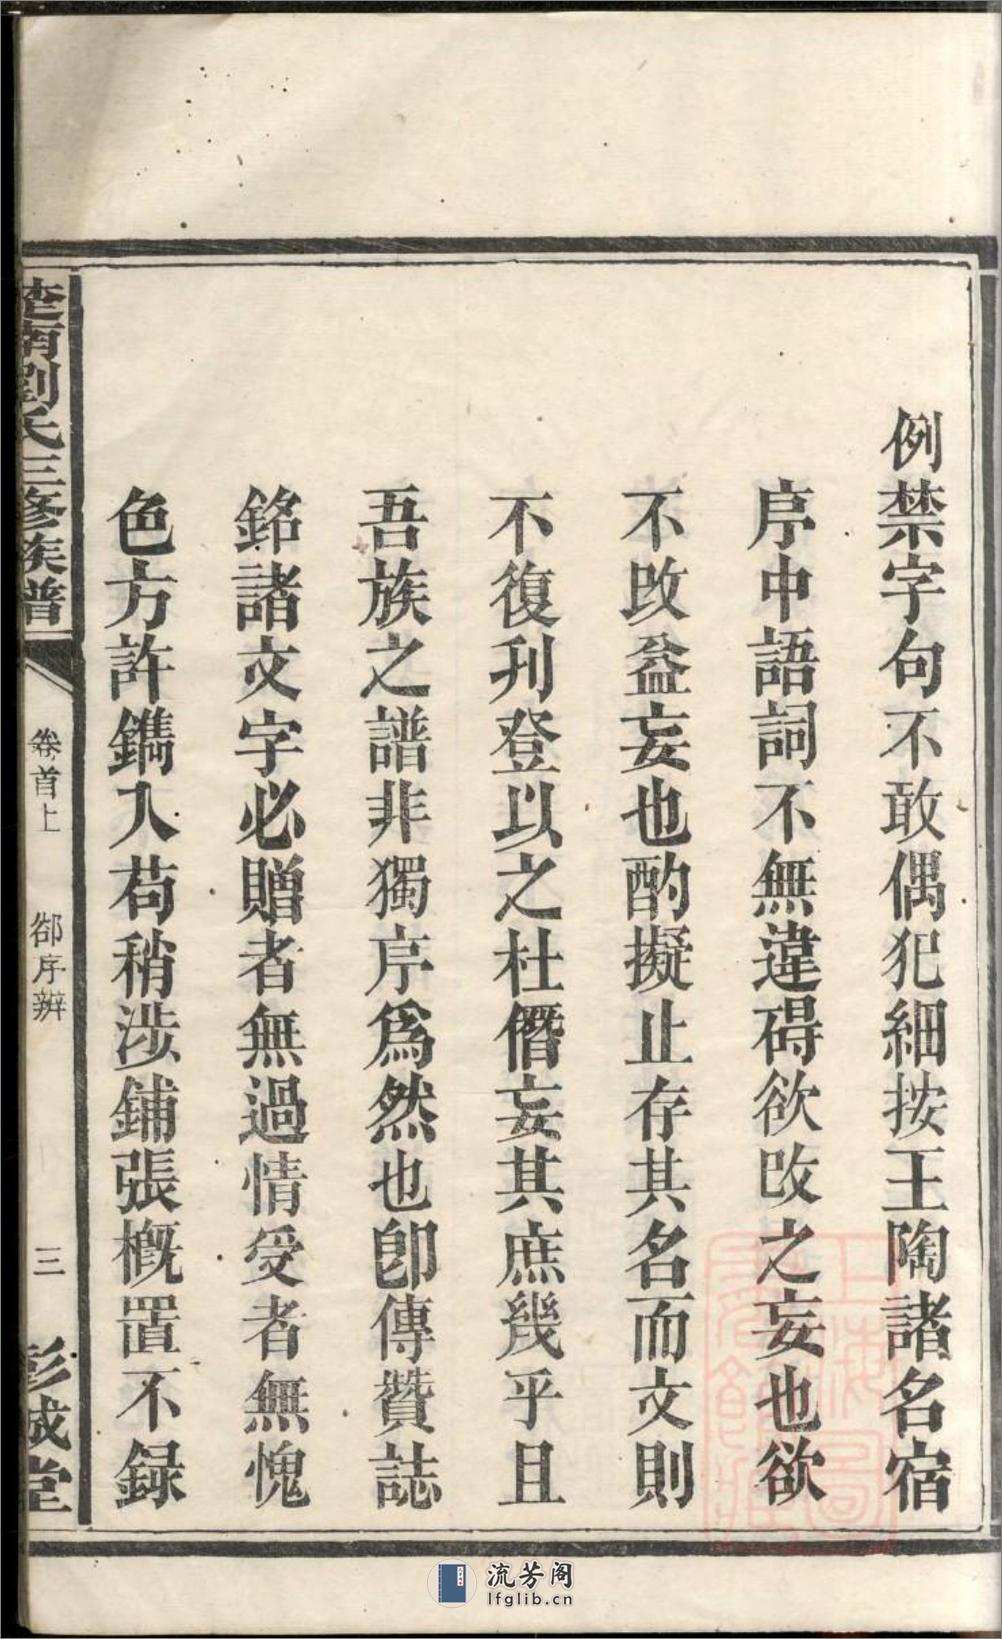 例禁字句不敢偶犯細按王陶諸名宿
序中語詞不無違碍欲改之妄也欲
不改益妄也酌擬止存其名而文則
不復刋登以之杜僭妄其庶幾乎且
吾族之譜非獨序爲然也卽傳贊誌
銘諸文字必贈者無過情受者無愧
色方許鐫入茍稍涉鋪張槪置不録
楚南劉氏三修族譜
卷首上
郤序辨
三
彭城堂
流芳阁
lfglib.cn